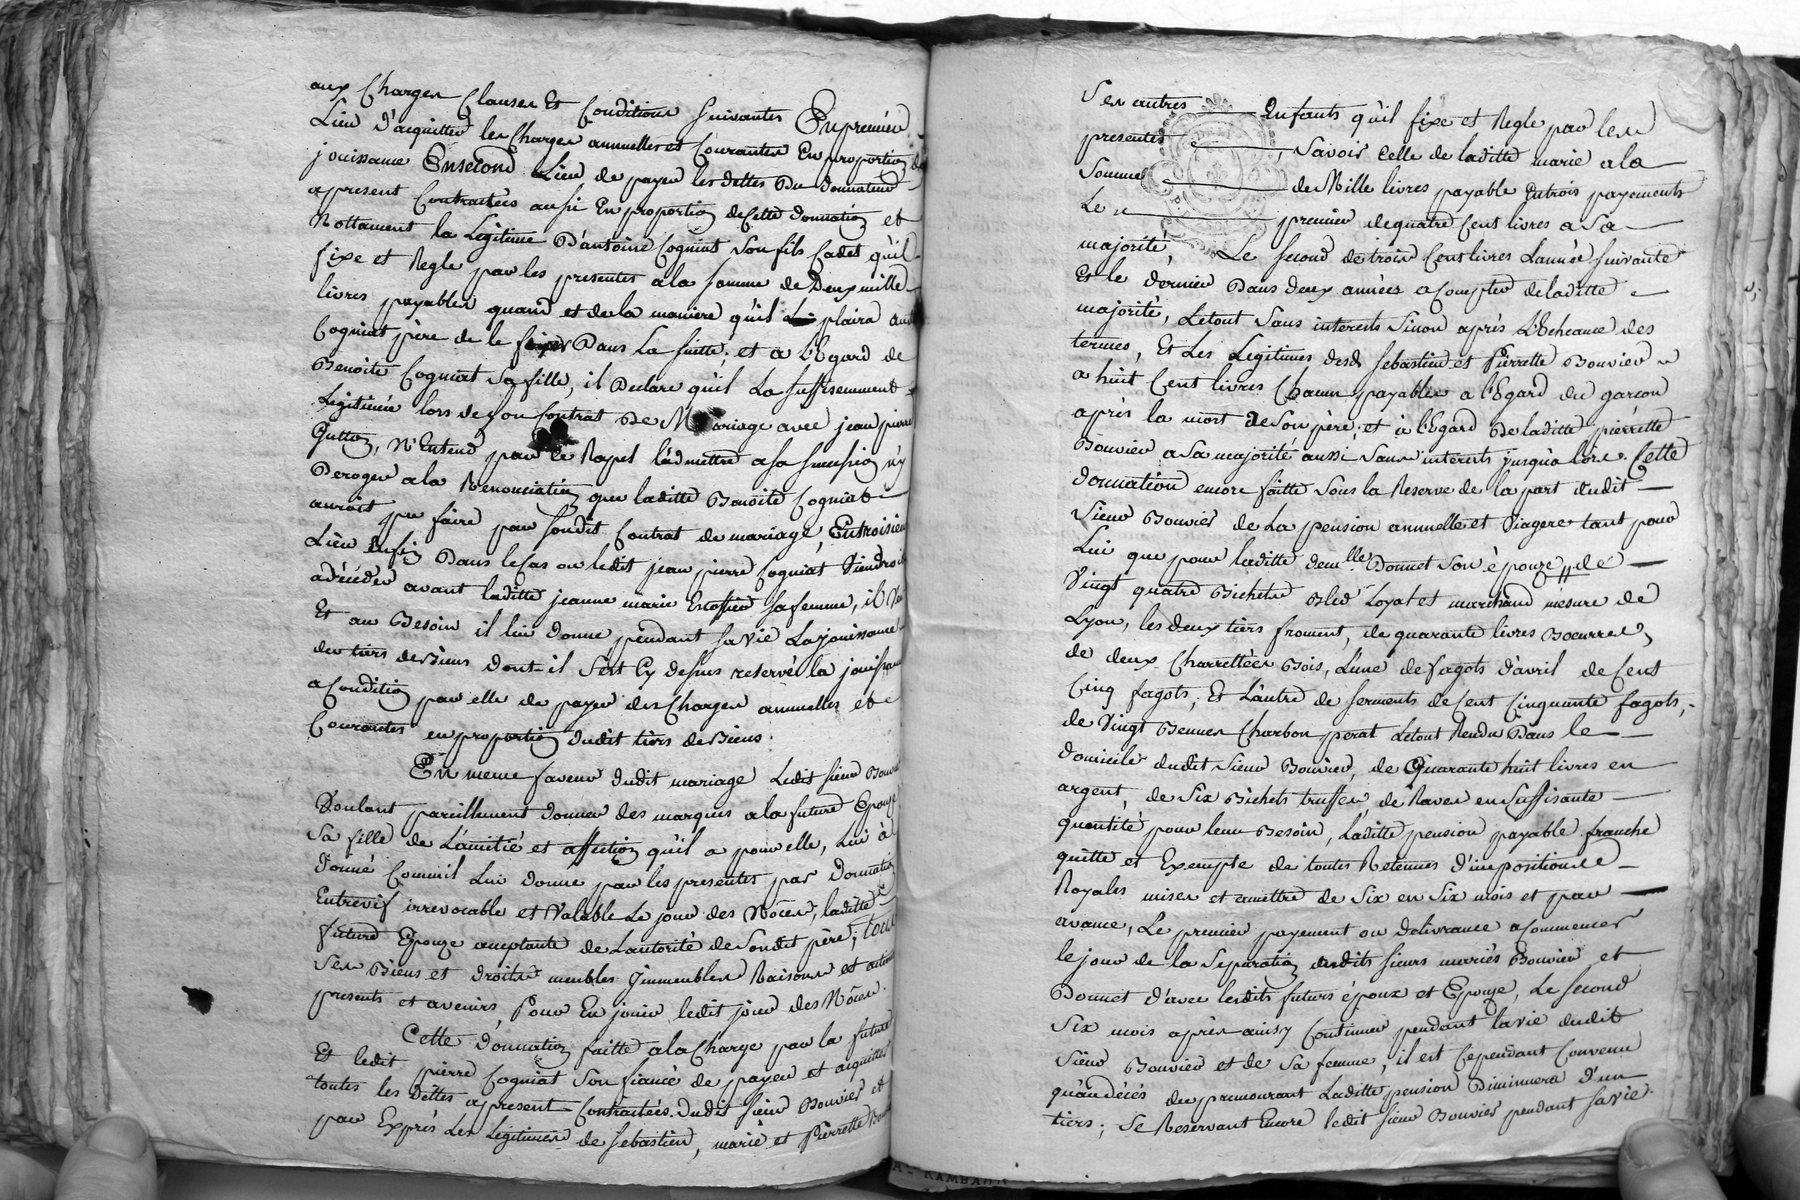 aux Charges Clauses Et Conditions suivantes En premier
Lieu d'aiquitter les Charges annuelles et Courantes En proportion de
jouissance En second Lieu de payer les dettes Du donnateur
a present Contractées aussi En proportion de Cette donnation et
Nottament la Legitime D'antoine Cogniat son fils Cadet qu'il
fixe et Regle par les presentes a la somme de Deux mille
livres payables quand et de la maniere qu'il plaira audt
Cogniat père de le fixer Dans La suitte; et a l'Egard de
Benoite Cogniat sa fille, il Declare qu'il La suffisemment
Legitimée lors de son Contrat De Mariage avec jean pierre
Gutton, N'Entend par le Rapel l'admettre a sa succession n'y
Deroger a la Renonciation que laditte Benoite Cogniat
auroit pu faire par sondit Contrat de mariage, En troisieme
Lieu Enfin Dans le Cas ou ledit jean pierre Cogniat Viendroit
a décéder avant laditte jeanne marie Escoffier sa femme, il Veut
Et au Besoin il lui donne pendant sa vie La jouissance
du tiers de Biens dont il s'est Cy dessus reservé la jouissance
a Condition par elle de payer des Charges annuelles et
Courantes en proportion dudit tiers de Biens.
En meme faveur dudit mariage Ledit sieur Bouvier
Voulant pareillement donner des marques a la future Epouze
sa fille de L'amitié et affection qu'il a pour elle, Lui à
donné Comm'il Lui donne par les presentes par Donnation
Entrevif irrevocable et Valable Le jour des Nôces, laditte
future Epouze acceptante de L'autorité de Son dit père; tous
Ses Biens et droits meubles Jmmeubles Raisons et actions
presents et avenirs, Pour En jouir ledit jour des Nôces.
Cette donnation faitte a la Charge par la future
Et ledit pierre Cogniat Son fiancé de payer et aiquitter
toutes les Dettes a present Contractées dudit sieur Bouvier et
par Exprès Les Legitimes de sebastien, marie et Pierrette Bouvier
Ses autres Enfants qu'il fixe et Regle par les
presentes, Savoir Celle de laditte marie a la
Somme de Mille livres payable En trois payements
Le premier de quatre Cent livres a Sa
majorité, Le second de trois Cent livres L'année suivante
Et le dernier Dans deux années a Compter de laditte
majorité, Le tout Sans interets Sinon après L'Echeance des
termes, Et Les Legitimes desd. sebastien et Pierrette Bouvier
a huit Cent livres Chacun payables a l'Egard du garçon
après la mort de Son père; et à l'Egard De laditte pierrette
Bouvier a Sa majorité aussi Sans interets jusqu'a Lors. Cette
donnation encore faitte sous la Reserve de la part dudit
Sieur Bouvier de La pension annuelle et Viagere tant pour
Lui que pour laditte demlle. Donnet Son épouze de
Vingt quatre Bichets Bled Loyal et marchand mesure de
Lyon, les deux tiers froment, de quarante livres Boeurre,
de deux Charrettées Bois, L'une de fagots d'avril de Cent
Cinq fagots; Et L'autre de serments de Cent Cinquante fagots,
de Vingt Bennes Charbon perat Le tout Rendu Dans le
domicile dudit Sieur Bouvier, de Quarante huit livres en
argent, de Six Bichets truffes, de Raves en Suffisante
quantité pour leur Besoin, Laditte pension payable franche
quitte et Exempte de toutes Retenues d'impositions
Royales mises et a mettre de Six en Six mois et par
avance, Le premier payement ou delivrance a Commencer
le jour de la Separation desdits sieurs mariés Bouvier et
Donnet d'avec lesdits futurs époux et Epouze, Le second
Six mois après ainsy Continuer pendant la vie dudit
Sieur Bouvier et de Sa femme, il est Cependant Convenu
qu'au décés du premourant Laditte pension Diminuera d'un
tiers; Se Reservant Encore ledit Sieur Bouvier pendant sa vie.